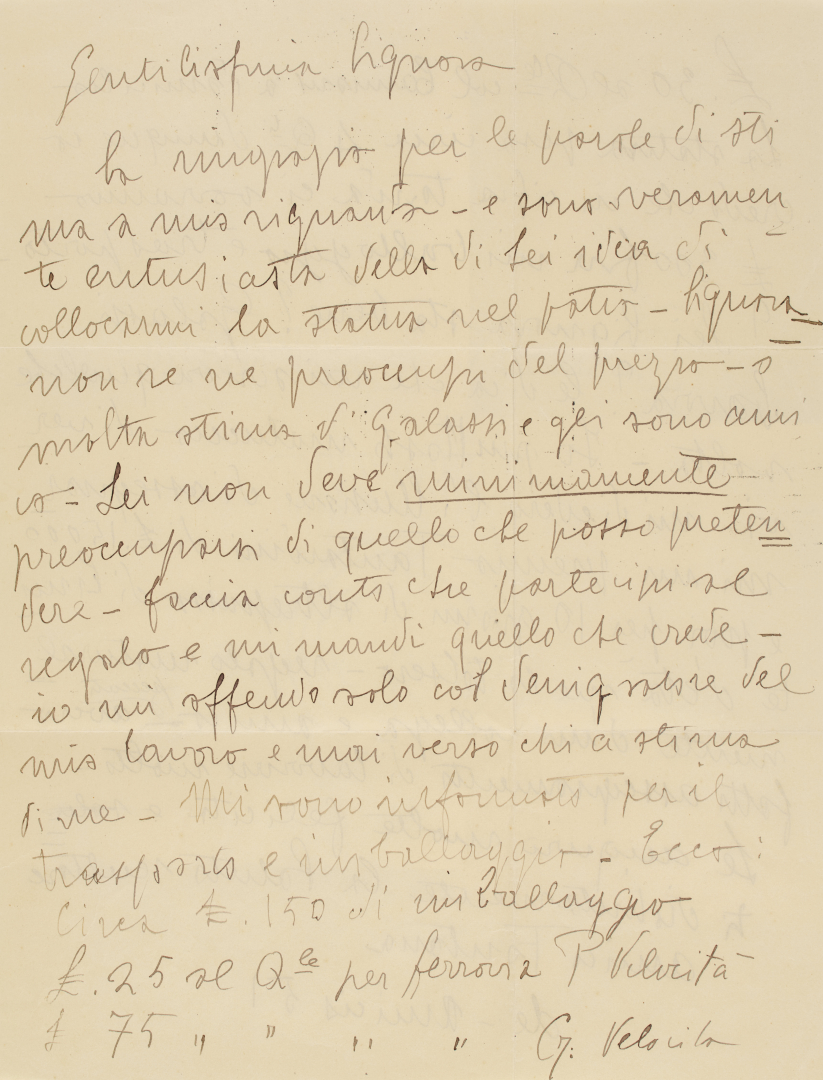 Gentilissima Signora
La ringrazio per le parole di sti
ma a mio riguardo – e sono veramen
te entusiasta della di Lei idea di
collocarmi la statua nel patio – Signora
non se ne preoccupi del prezzo – ò
molta stima di Galassi e gli sono ami
co – Lei non deve minimamente
preoccuparsi di quello che posso preten
dere – faccia conto che partecipi al
regalo e mi mandi quello che crede –
io mi offendo solo col denigratore del
mio lavoro e mai verso chi a stima
di me – Mi sono informato per il
trasporto e imballaggio – Ecco :
Circa £. 150 di imballaggio
£. 25 al Qle per ferrovia P Velocità
£ 75 " " " " G. Velocita